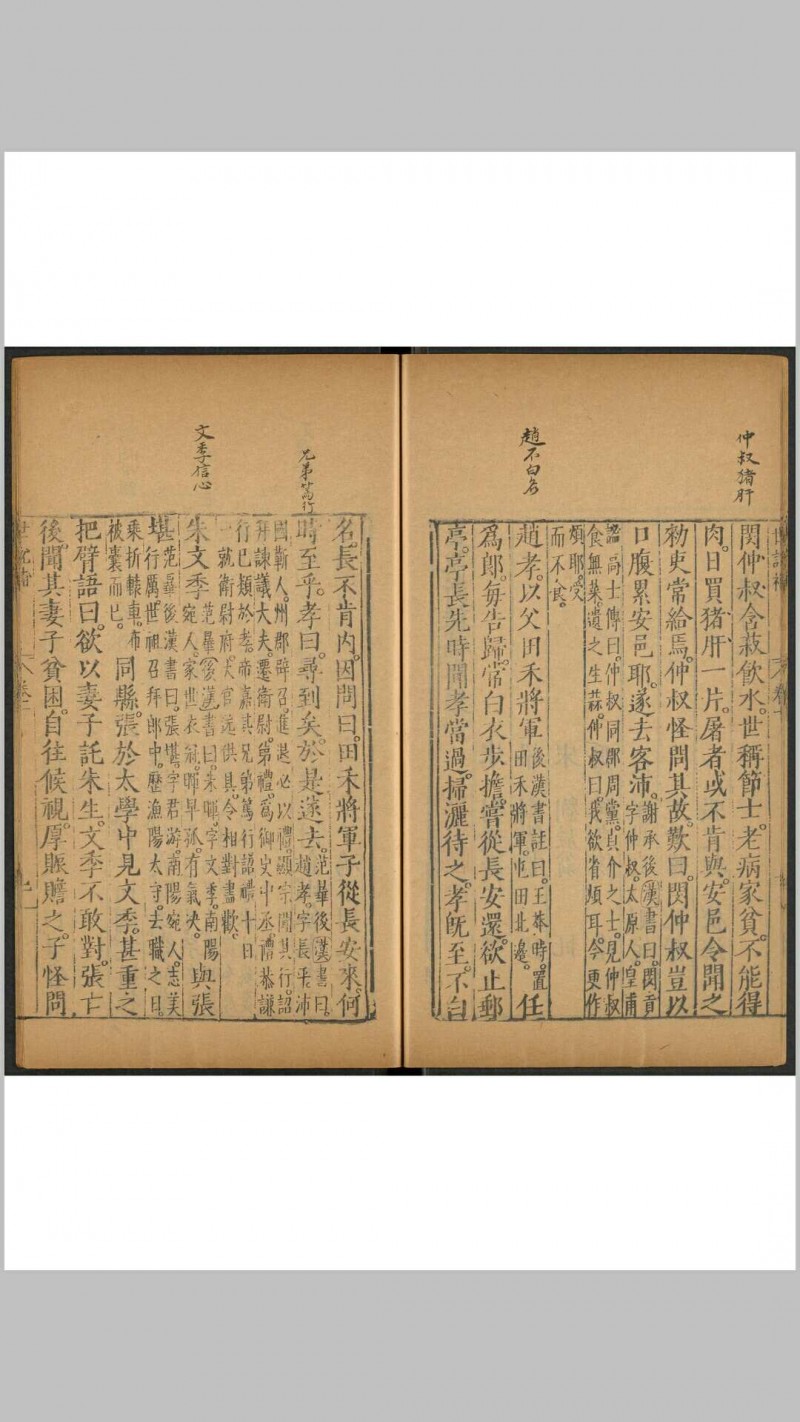 仲叔猪肝
趙不白名
閔仲叔含菽飲水。世稱節士。老病家貧。不能得
肉。日買猪肝一片。屠者或不肯與。安邑令聞之
勑吏常給焉。仲叔怪問其故。歎曰。閔仲叔豈以
口腹累安邑耶。遂去客沛。謝承後漢書曰。閔貢
字仲叔。太原人。皇甫
謐高士傳曰。仲叔同郡周黨。貞介之士。見仲叔
食無菜。遺之生蒜。仲叔曰。我欲省煩耳。今更作
煩耶。受
而不食。
趙孝。以父田禾將軍後漢書註曰。王莽時。置
田禾將軍。屯田北邊。任
爲郎。每告歸。常白衣步擔。嘗從長安還。欲止郵
亭。亭長先時聞孝當過。掃灑待之。孝旣至。不白
兄弟篤行
文季信心
名。長不肯内。因問曰。田禾將軍子從長安來。何
時至乎。孝曰。尋到矣。於是遂去。范曄後漢書曰。
趙孝。字長平。沛
國蘄人。州郡辟召。進退必以禮。顯宗聞其行。詔
拜諫議大夫。遷衛尉。弟禮。爲御史中丞。禮恭謙
行已類於孝。帝嘉其兄弟篤行。詔禮十日
一就衛尉府。太官送供具。令相對盡歡。
朱文季范曄後漢書曰。朱暉。字文季。南陽
宛人。家世衣冠。暉早孤。有氣决。與張
堪范曄後漢書曰。張堪。字君游。南陽宛人。志美
行厲。世祖召拜郎中。歷漁陽太守。去職之日。
乘折轅車。布
被囊而已。同縣。張於太學中見文季。甚重之
把臂語曰。欲以妻子託朱生。文季不敢對。張亡
後。聞其妻子貧困。自往候視。厚賑贍之。子怪問